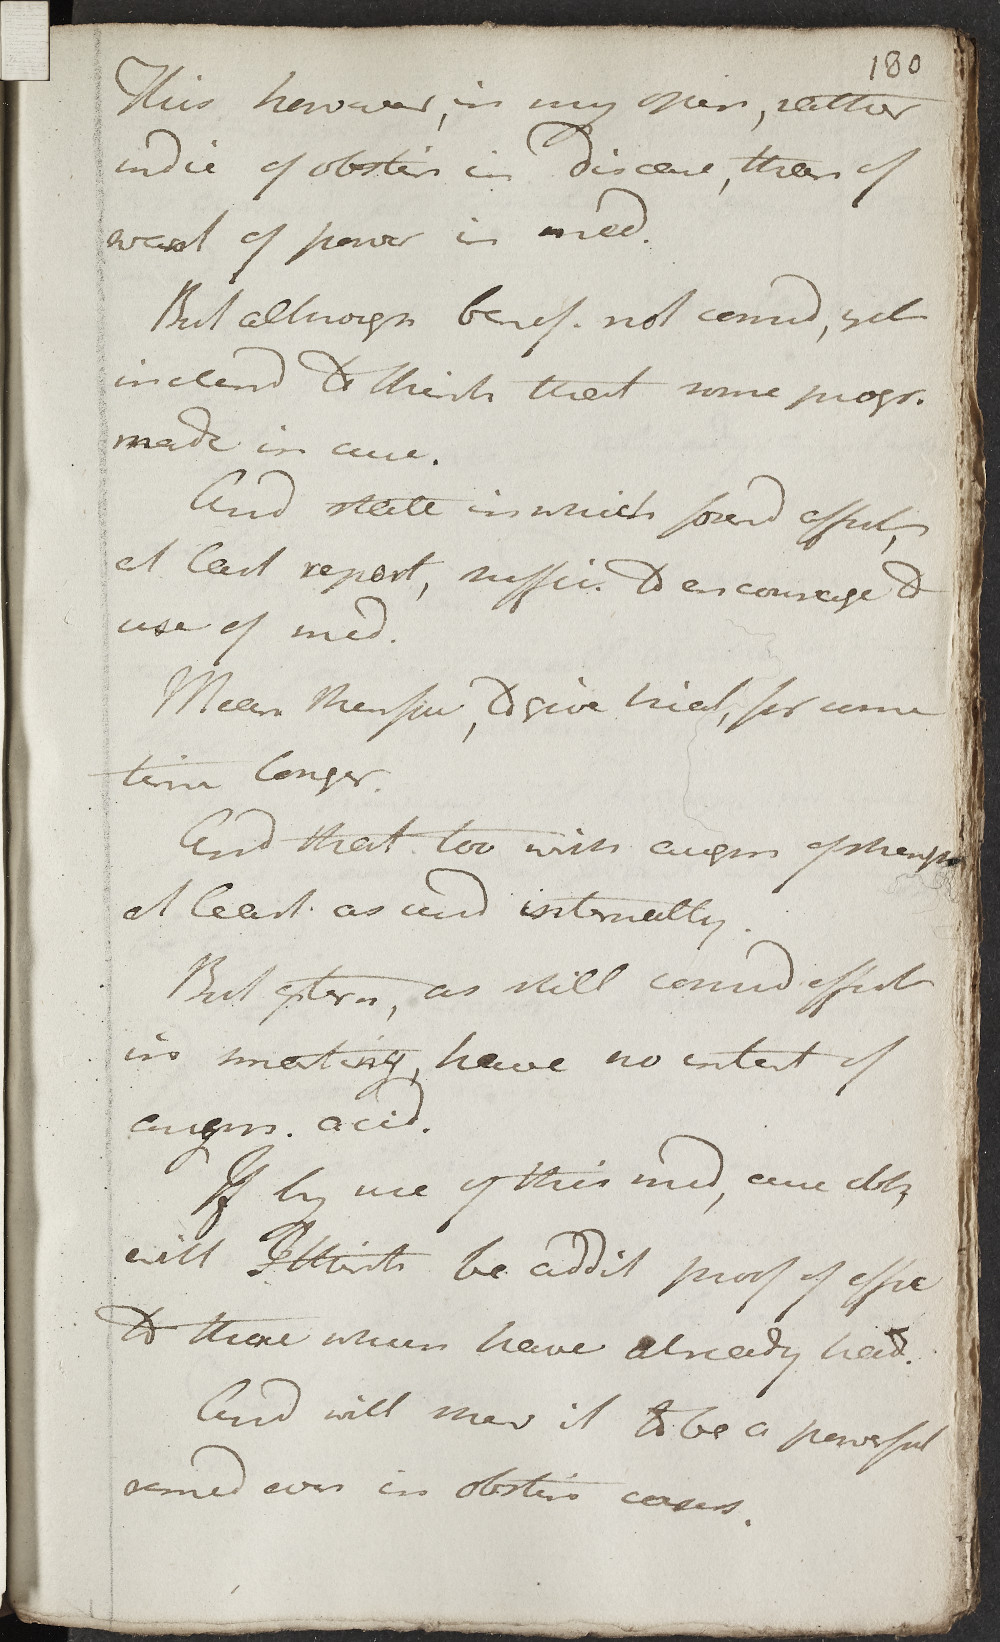 180
This however, in my opin, rather
indic of obstin in disease, than of
want of power in med.
But although benef. not consid, yet
inclend to think that some progr.
made in cure.
And state in which found affect,
at last report, suffic. to encourage to
use of med.
Mean therefore, to give trial, for some
time longer.
And that too with augm of strength
at least as used internally.
But extern, as still consid effect
in smarting, have no intent of
augm. acid.
If by use of this med, cure obt,
will I think be addit proof of effic
to those when have already had.
And will shew it to be a powerful
remed even in obstin cases.